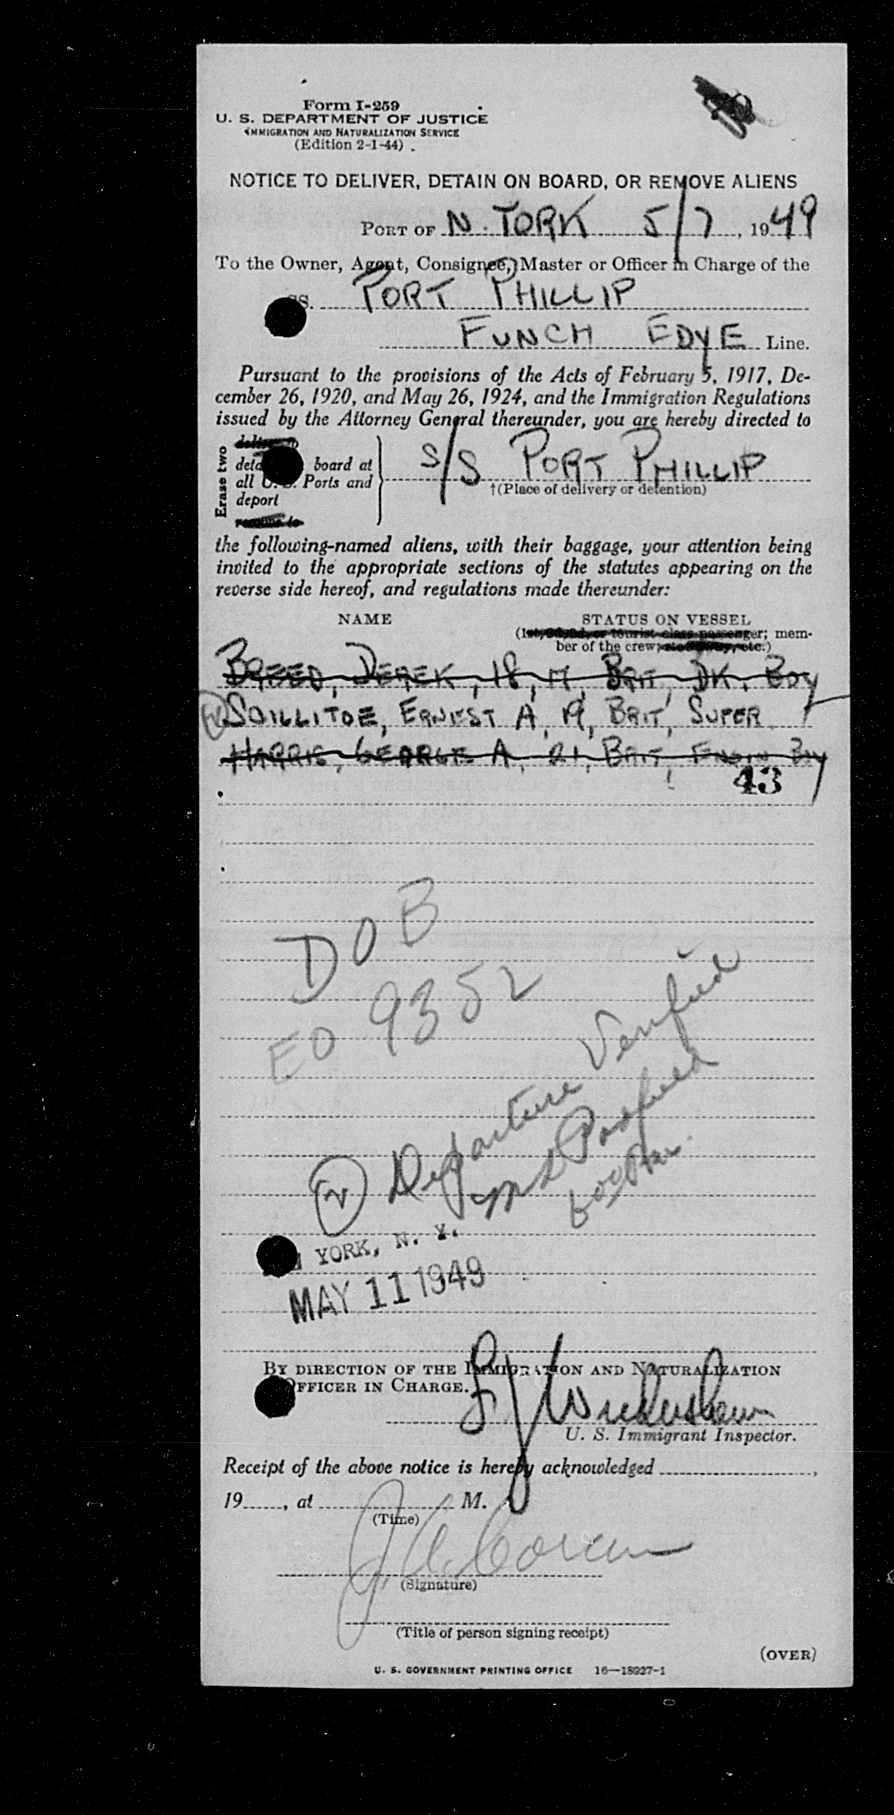 Form I-259
U. S. DEPARTMENT OF JUSTICE
IMMIGRATION AND NATURALIZATION SERVICE
(Edition 2-1-44)
NOTICE TO DELIVER, DETAIN ON BOARD, OR REMOVE ALIENS
PORT OF N. YORK 5/7, 1949
To the Owner, Agent, Consignee, Master or Officer in Charge of the
SS. PORT PHILLIP
FUNCH EDYE Line.
Pursuant to the provisions of the Acts of February 5, 1917, De-
cember 26, 1920, and May 26, 1924, and the Immigration Regulations
issued by the Attorney General thereunder, you are hereby directed to
Erase two
board at
all Ports and
deport
S/S PORT PHILLIP
†(Place of delivery or detention)
the following-named aliens, with their baggage, your attention being
invited to the appropriate sections of the statutes appearing on the
reverse side hereof, and regulations made thereunder:
NAME STATUS ON VESSEL
(1st, 2d, or tourist class passenger; mem-
ber of the crew; etc.)
BREED, DEREK, 18, M, BRIT, DK. BOY
SDILLITOE, ERNEST A, 19, BRIT, SUPER
HARRIS, GEORGE A, 21, BRIT, ENGIN BOY
43
DOB
EO 9352
2 Departure Verified
600 PM.
YORK, N. Y.
MAY 11 1949
BY DIRECTION OF THE IMMIGRATION AND NATURALIZATION
OFFICER IN CHARGE.
U. S. Immigrant Inspector.
Receipt of the above notice is hereby acknowledged
19 , at M.
(Time)
(Signature)
(Title of person signing receipt)
(OVER)
U. S. GOVERNMENT PRINTING OFFICE 16—18927-1